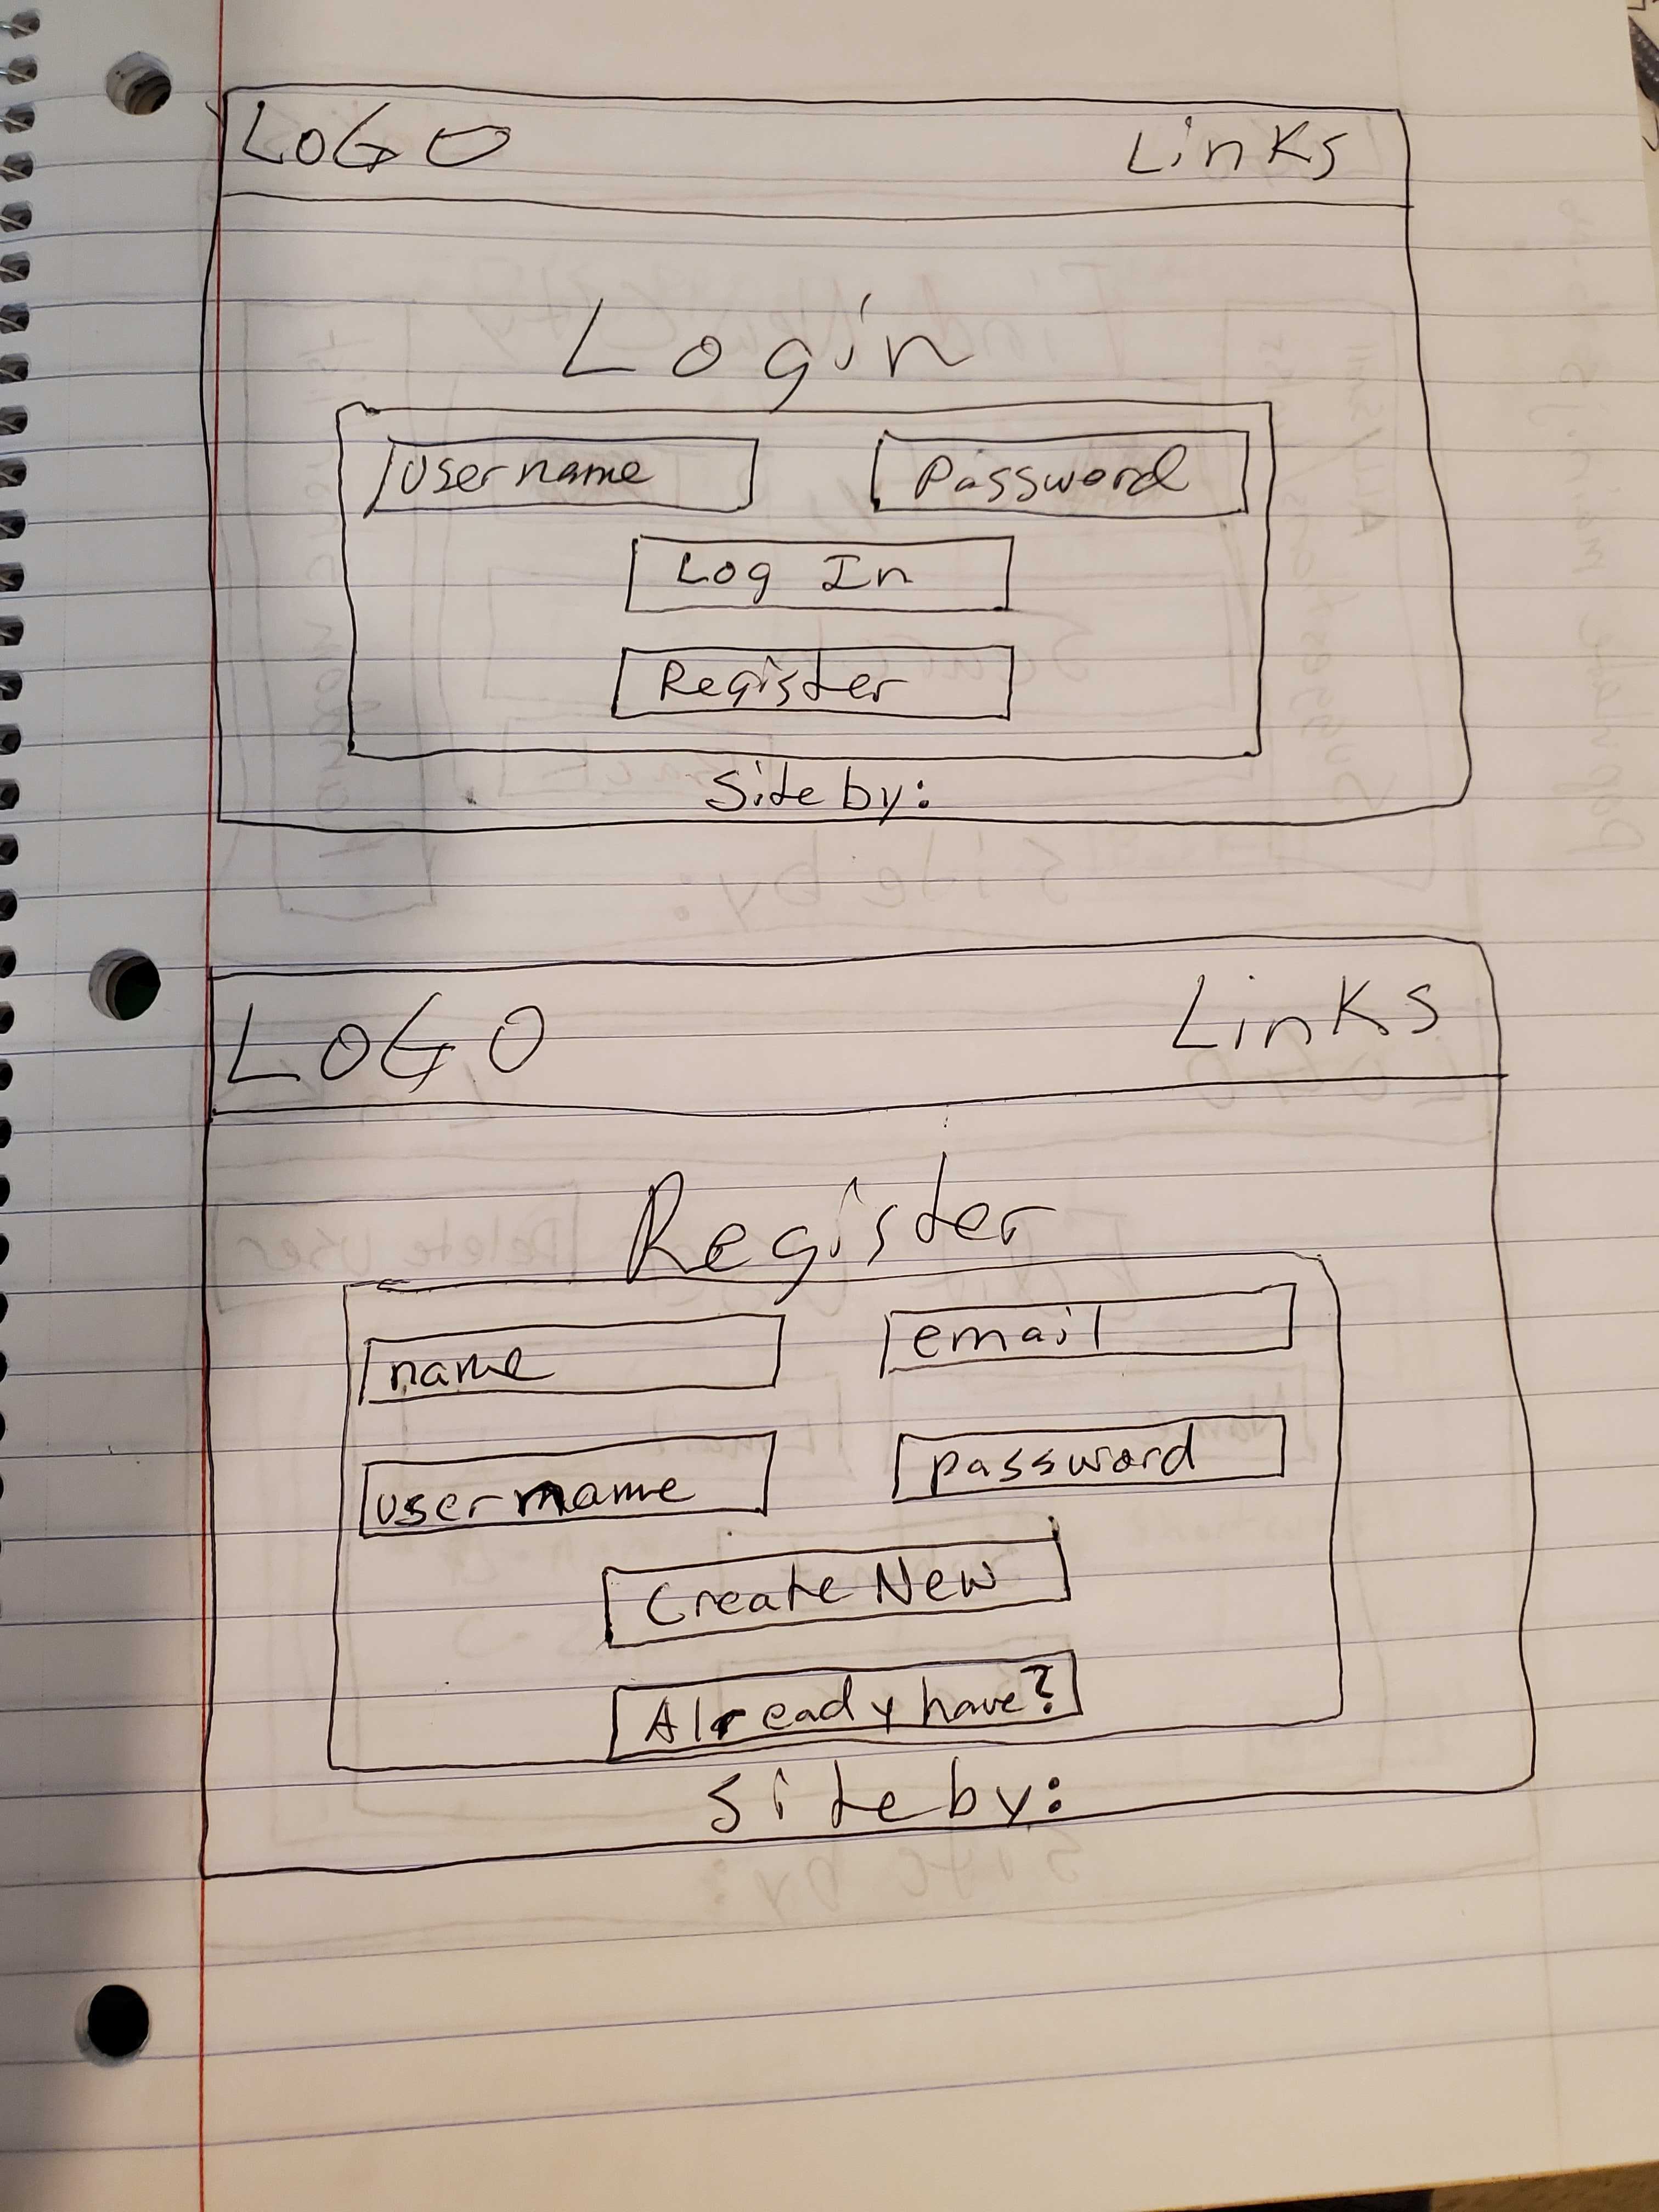 LOGO Links
Login
Username Password
Log In
Register
Site by:
LOGO Links
Register
name email
username password
Create New
Already have?
Site by: